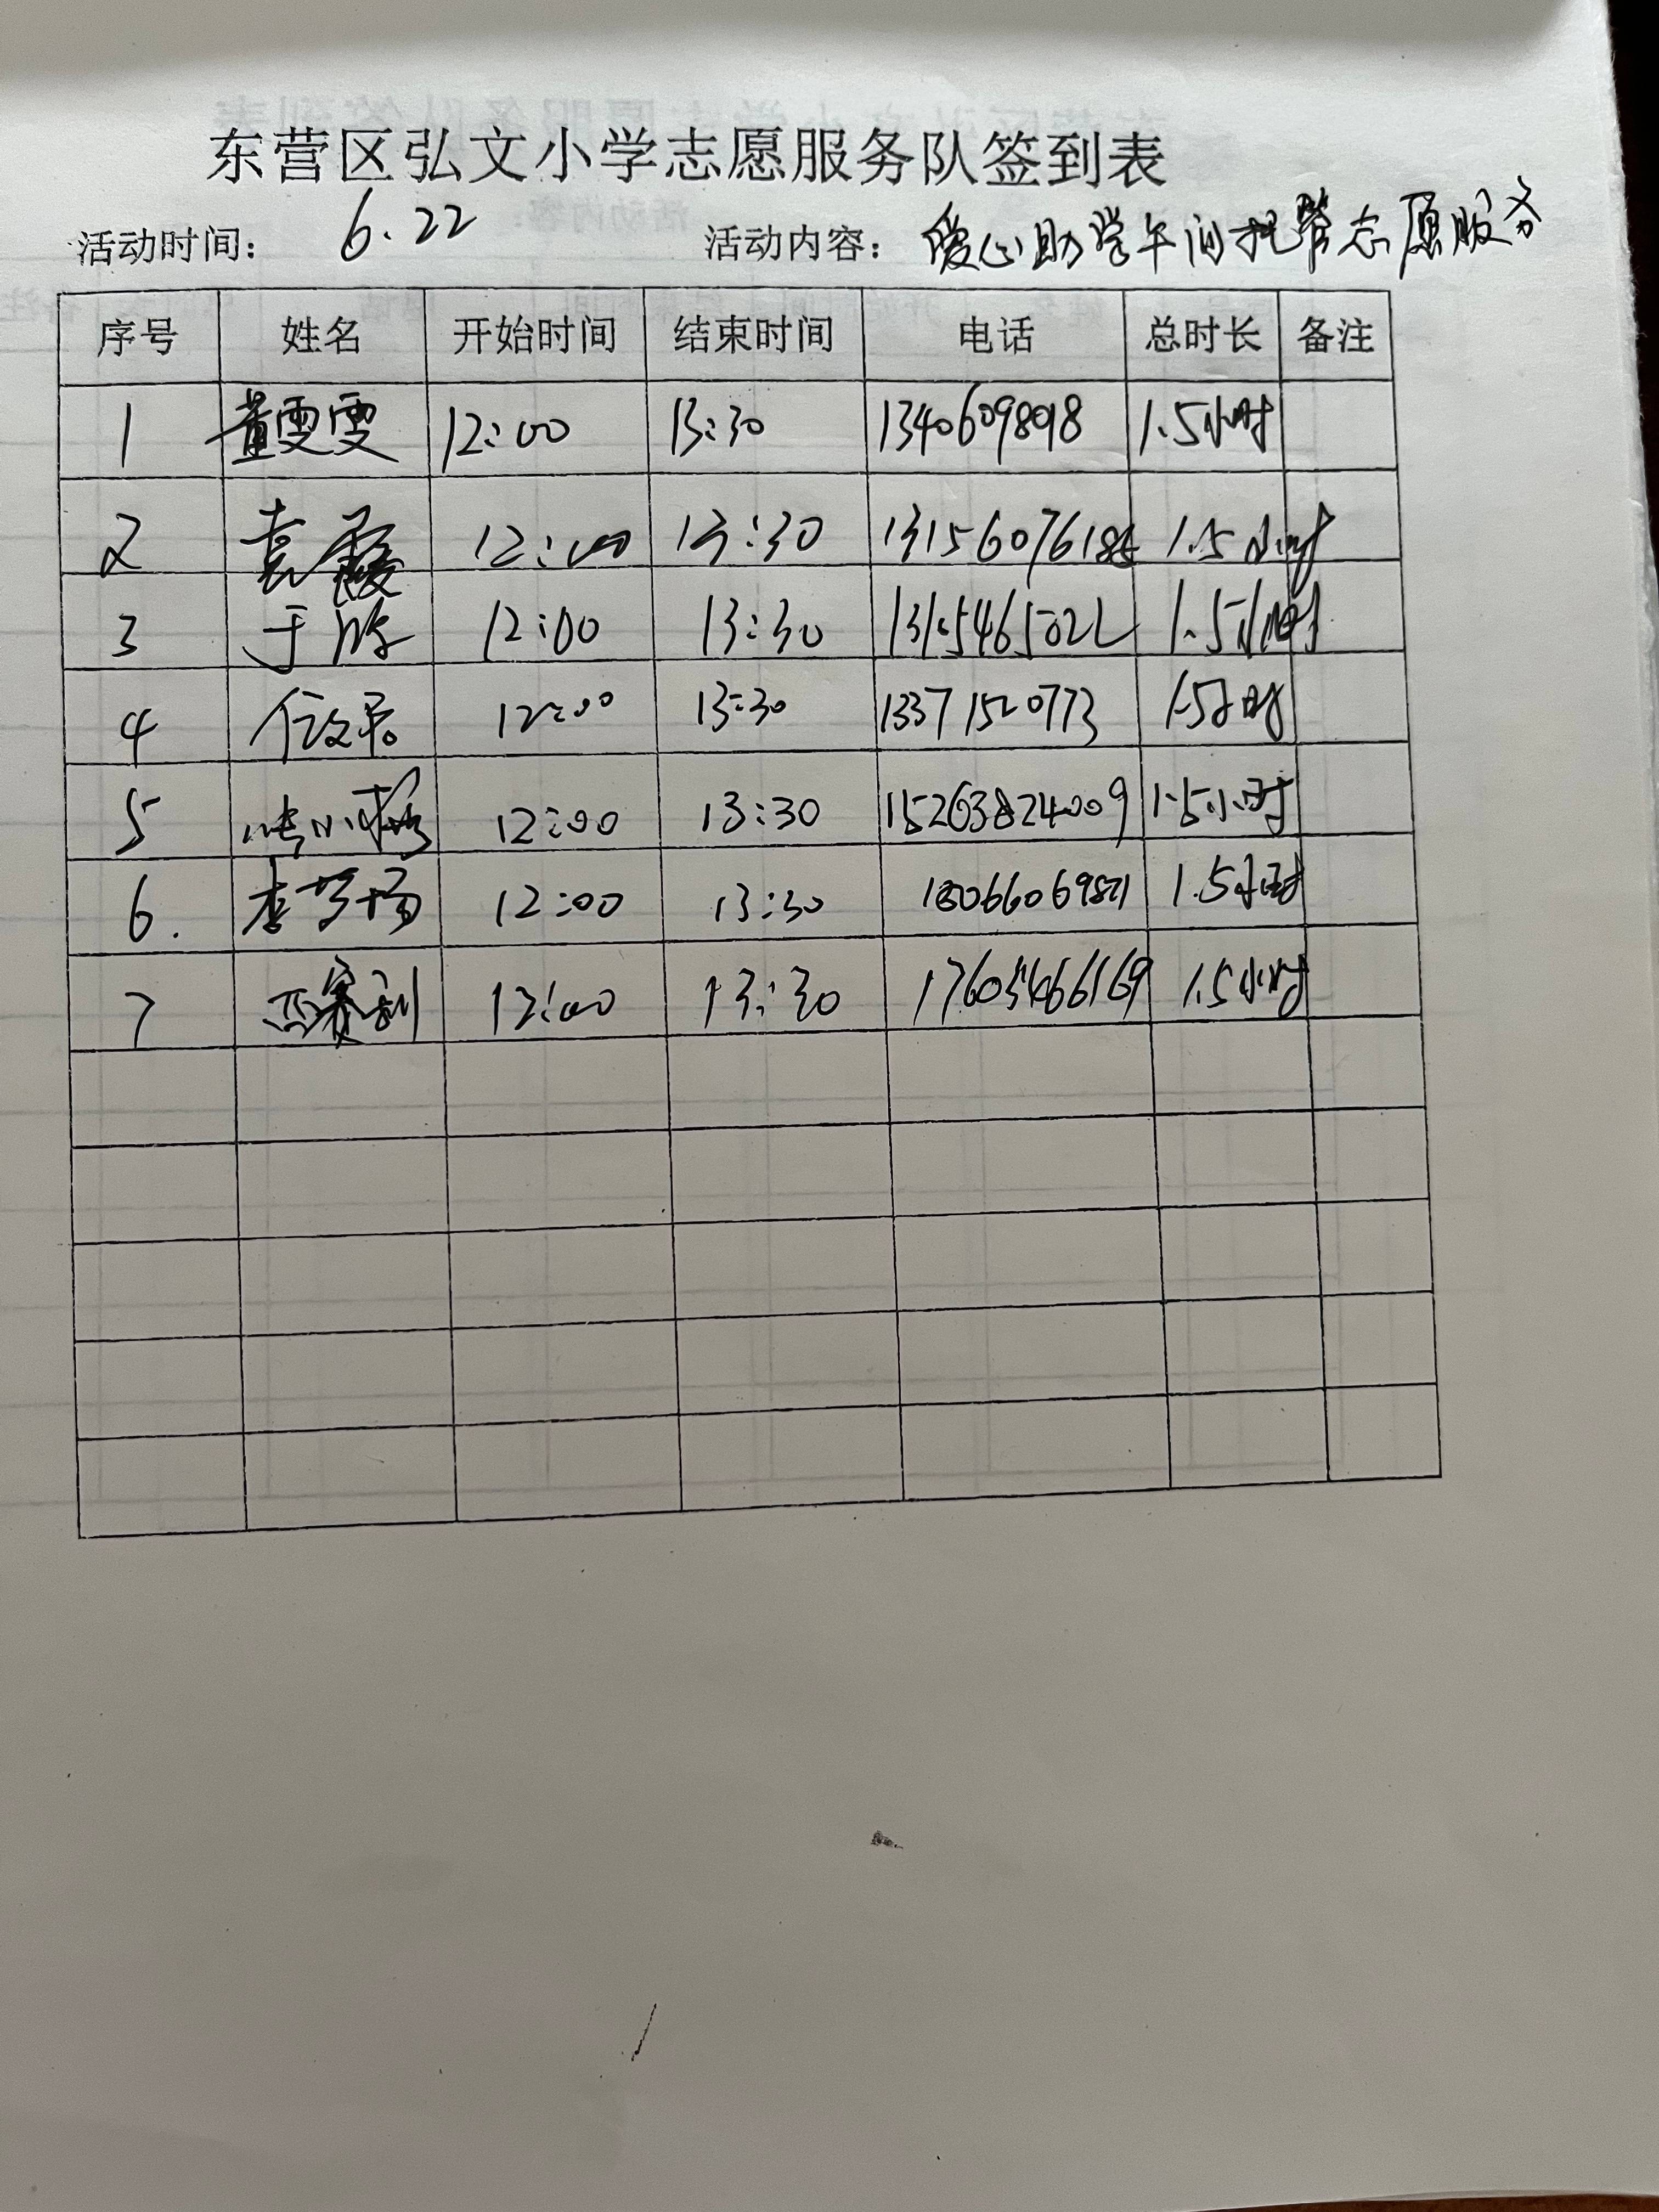 东营区弘文小学志愿服务队签到表
活动时间: 6.22 活动内容: 爱心助学午间托管志愿服务
序号 姓名 开始时间 结束时间 电话 总时长 备注
1 董雯雯 12:00 13:30 1.5小时
2 袁霞 12:00 13:30 1.5小时
3 12:00 13:30 13154650222 1.5小时
4 12:00 13:30 13371520773 1.5小时
5 12:00 13:30 15263824009 1.5小时
6. 12:00 13:30 1.5小时
7 12:00 13:30 17605466169 1.5小时